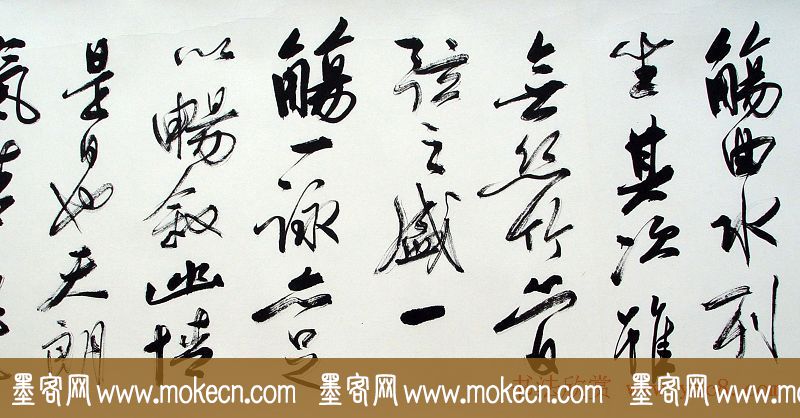 觴曲水列
坐其次雖
無絲竹管
弦之盛一
觴一詠亦足
以暢敘幽情
是日也天朗
氣清
墨客网 www.mokecn.com 墨客网 www.mokecn.com 墨客网 www.mokecn.com
书法欣赏